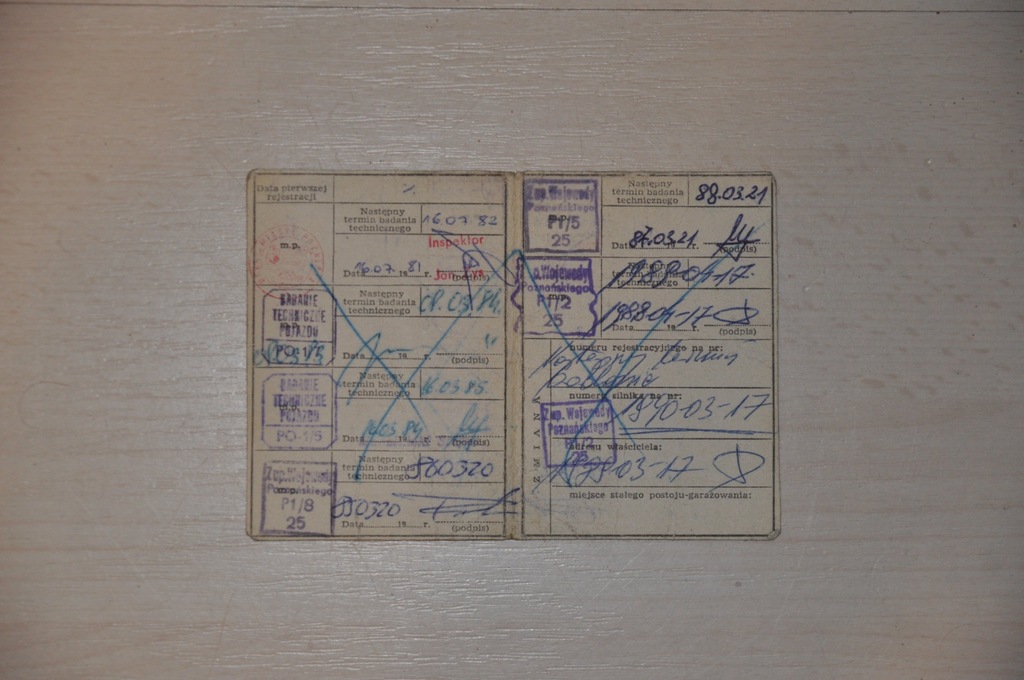 Data pierwszej
rejestracji
m.p.
Następny
termin badania
technicznego
16.07.82
Inspektor
Jan
16.07.81
Data 19 r. (podpis)
BADANIE
TECHNICZNE
POJAZDU
PO-1/5
Następny
termin badania
technicznego
Data 19 r. (podpis)
BADANIE
TECHNICZNE
POJAZDU
PO-1/5
Następny
termin badania
technicznego
16.03.85.
16.03.84.
Data 19 r. (podpis)
Z up. Wojewody
Poznańskiego
P1/8
25
Następny
termin badania
technicznego
860320
Data 19 r. (podpis)
Z up. Wojewody
Poznańskiego
P1/5
25
Następny
termin badania
technicznego
88.03.21
87.03.21
Data (podpis)
Z up. Wojewody
Poznańskiego
P1/2
25
m.p.
Następny
termin badania
technicznego
1988-04-17
Data 19 r. (podpis)
ZMIANA
numeru rejestracyjnego na nr:
Następny termin
Badania
numeru silnika na nr:
1990-03-17
Z up. Wojewody
Poznańskiego
P1/2
25
adresu właściciela:
miejsce stałego postoju-garażowania: